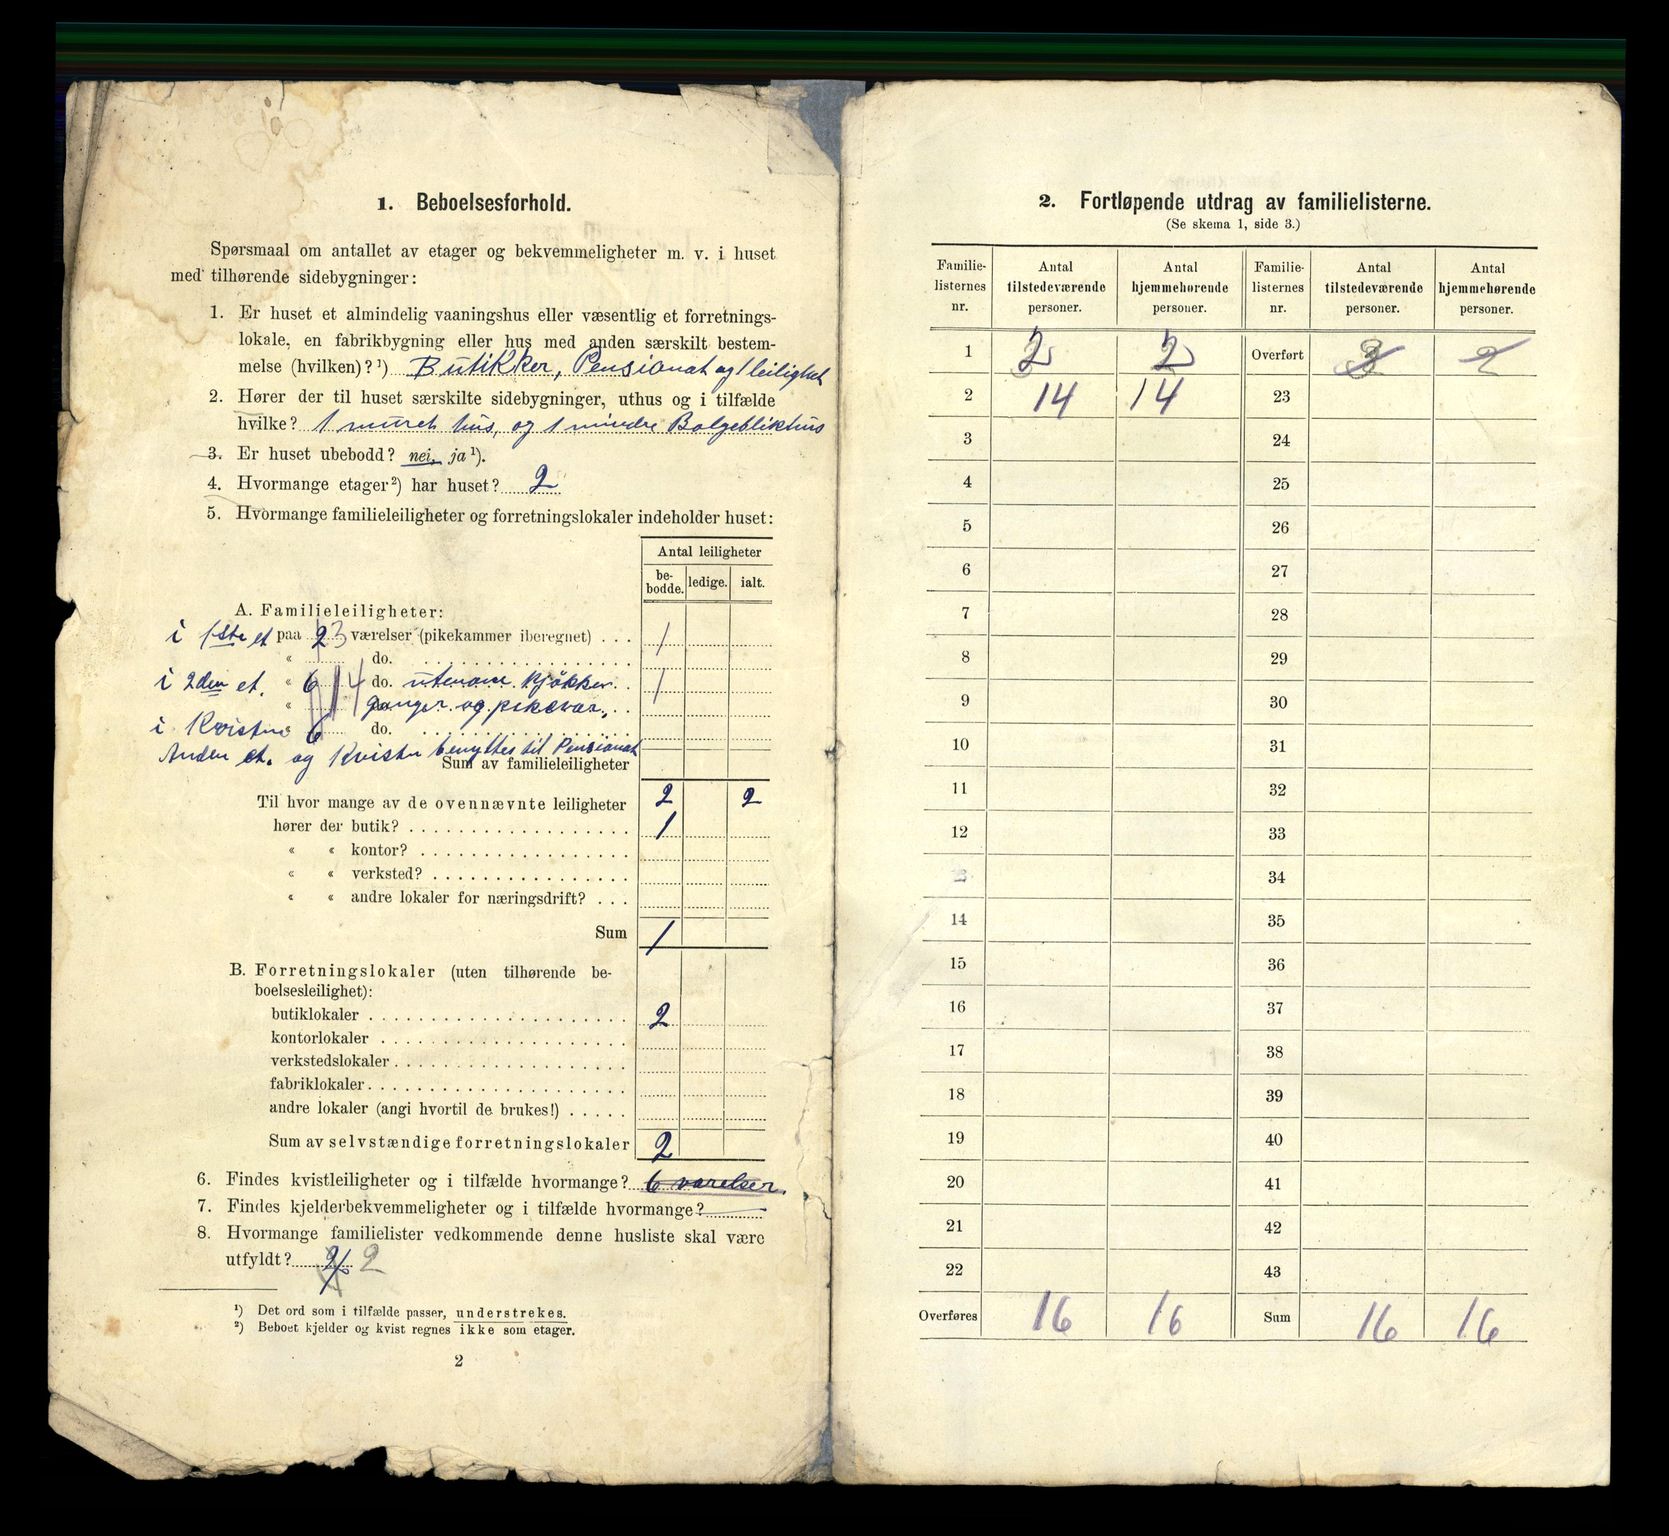 1. Beboelsesforhold.
Spørsmaal om antallet av etager og bekvemmeligheter m. v. i huset
med tilhørende sidebygninger:
1. Er huset et almindelig vaaningshus eller væsentlig et forretnings-
lokale, en fabrikbygning eller hus med anden særskilt bestem-
melse (hvilken)?¹) Butikker, Pensionat og 1 leilighet
2. Hører der til huset særskilte sidebygninger, uthus og i tilfælde
hvilke? 1 muret hus, og 1 mindre Bolgeblikhus
3. Er huset ubebodd? nei, ja¹).
4. Hvormange etager²) har huset? 2
5. Hvormange familieleiligheter og forretningslokaler indeholder huset:
Antal leiligheter
be-
bodde. ledige. ialt.
A. Familieleiligheter:
i 1ste et paa 2 3 værelser (pikekammer iberegnet) . . . 1
« do.
i 2den et. « 6 14 do. utenom Kjøkken 1
« do. ganger og pikevær.
i Kvistn « 6 do.
Anden et. og Kvistn benyttes til Pensionat
Sum av familieleiligheter
Til hvor mange av de ovennævnte leiligheter 2 2
hører der butik? 1
« « kontor?
« « verksted?
« « andre lokaler for næringsdrift? . . .
Sum 1
B. Forretningslokaler (uten tilhørende be-
boelsesleilighet):
butiklokaler 2
kontorlokaler
verkstedslokaler
fabriklokaler
andre lokaler (angi hvortil de brukes!)
Sum av selvstændige forretningslokaler 2
6. Findes kvistleiligheter og i tilfælde hvormange? 6 værelser.
7. Findes kjelderbekvemmeligheter og i tilfælde hvormange?
8. Hvormange familielister vedkommende denne husliste skal være
utfyldt? 2
¹) Det ord som i tilfælde passer, understrekes.
²) Beboet kjelder og kvist regnes ikke som etager.
2
2. Fortløpende utdrag av familielisterne.
(Se skema 1, side 3.)
Familie-
listernes
nr.
Antal
tilstedeværende
personer.
Antal
hjemmehørende
personer.
Familie-
listernes
nr.
Antal
tilstedeværende
personer.
Antal
hjemmehørende
personer.
1 2 2 Overført 3 2
2 14 14 23
3 24
4 25
5 26
6 27
7 28
8 29
9 30
10 31
11 32
12 33
34
14 35
15 36
16 37
17 38
18 39
19 40
20 41
21 42
22 43
Overføres 16 16 Sum 16 16